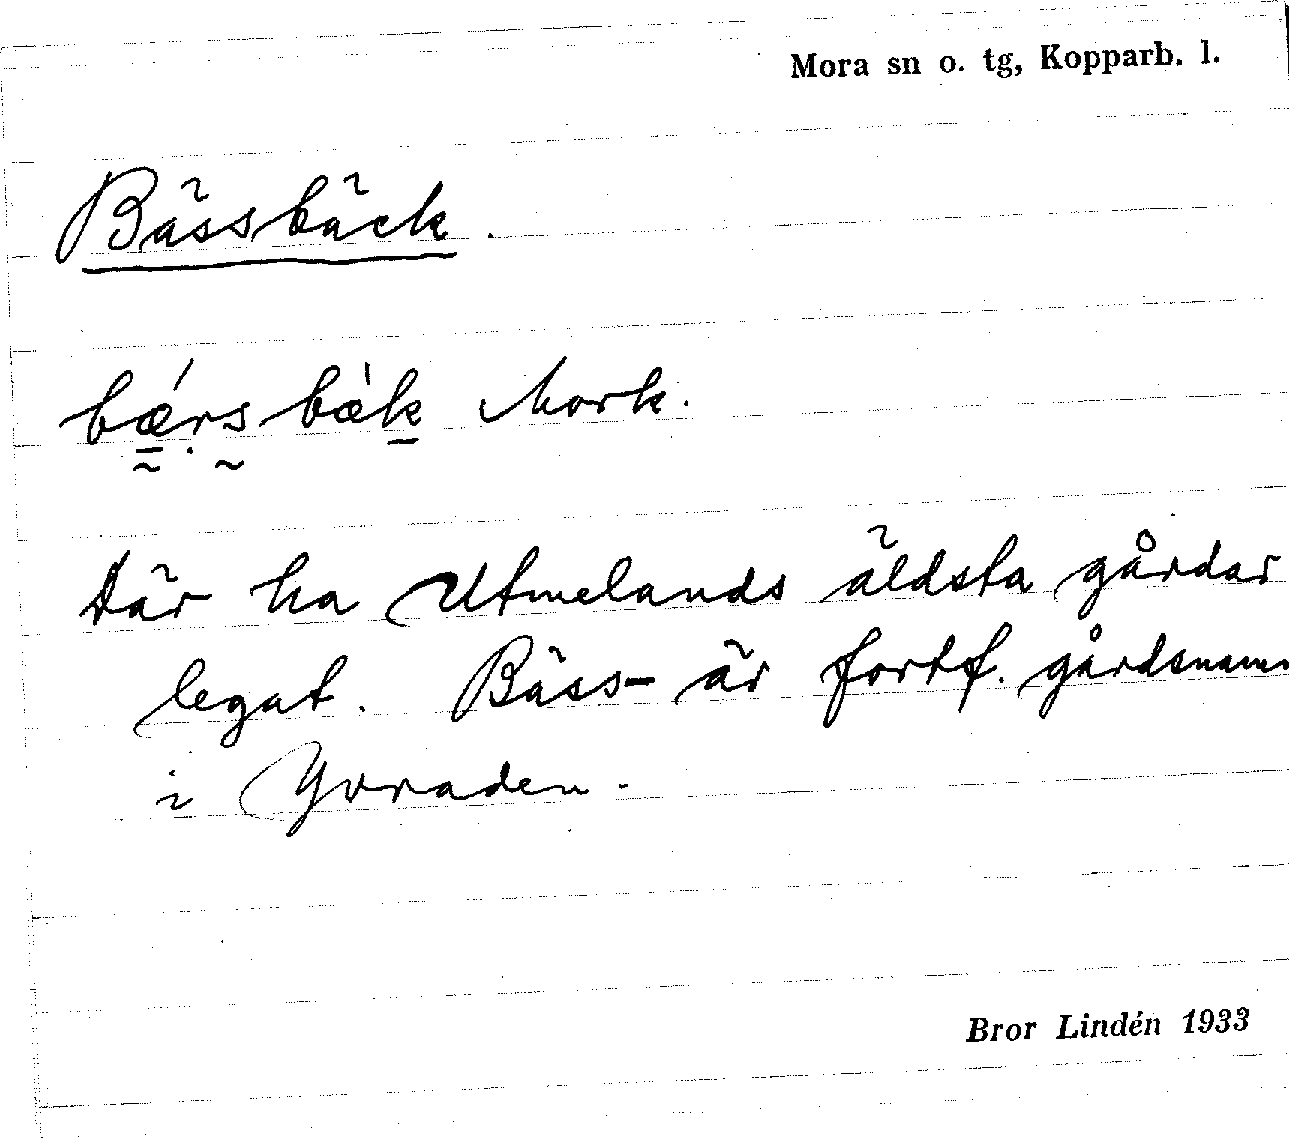 Mora sn o. tg, Kopparb. l.
Bässbäck.
bǽrs bæ̀k Mork.
Där ha Utmelands äldsta gårdar
legat. Bäss- är fortf. gårdsnamn
i Yvraden.
Bror Lindén 1933